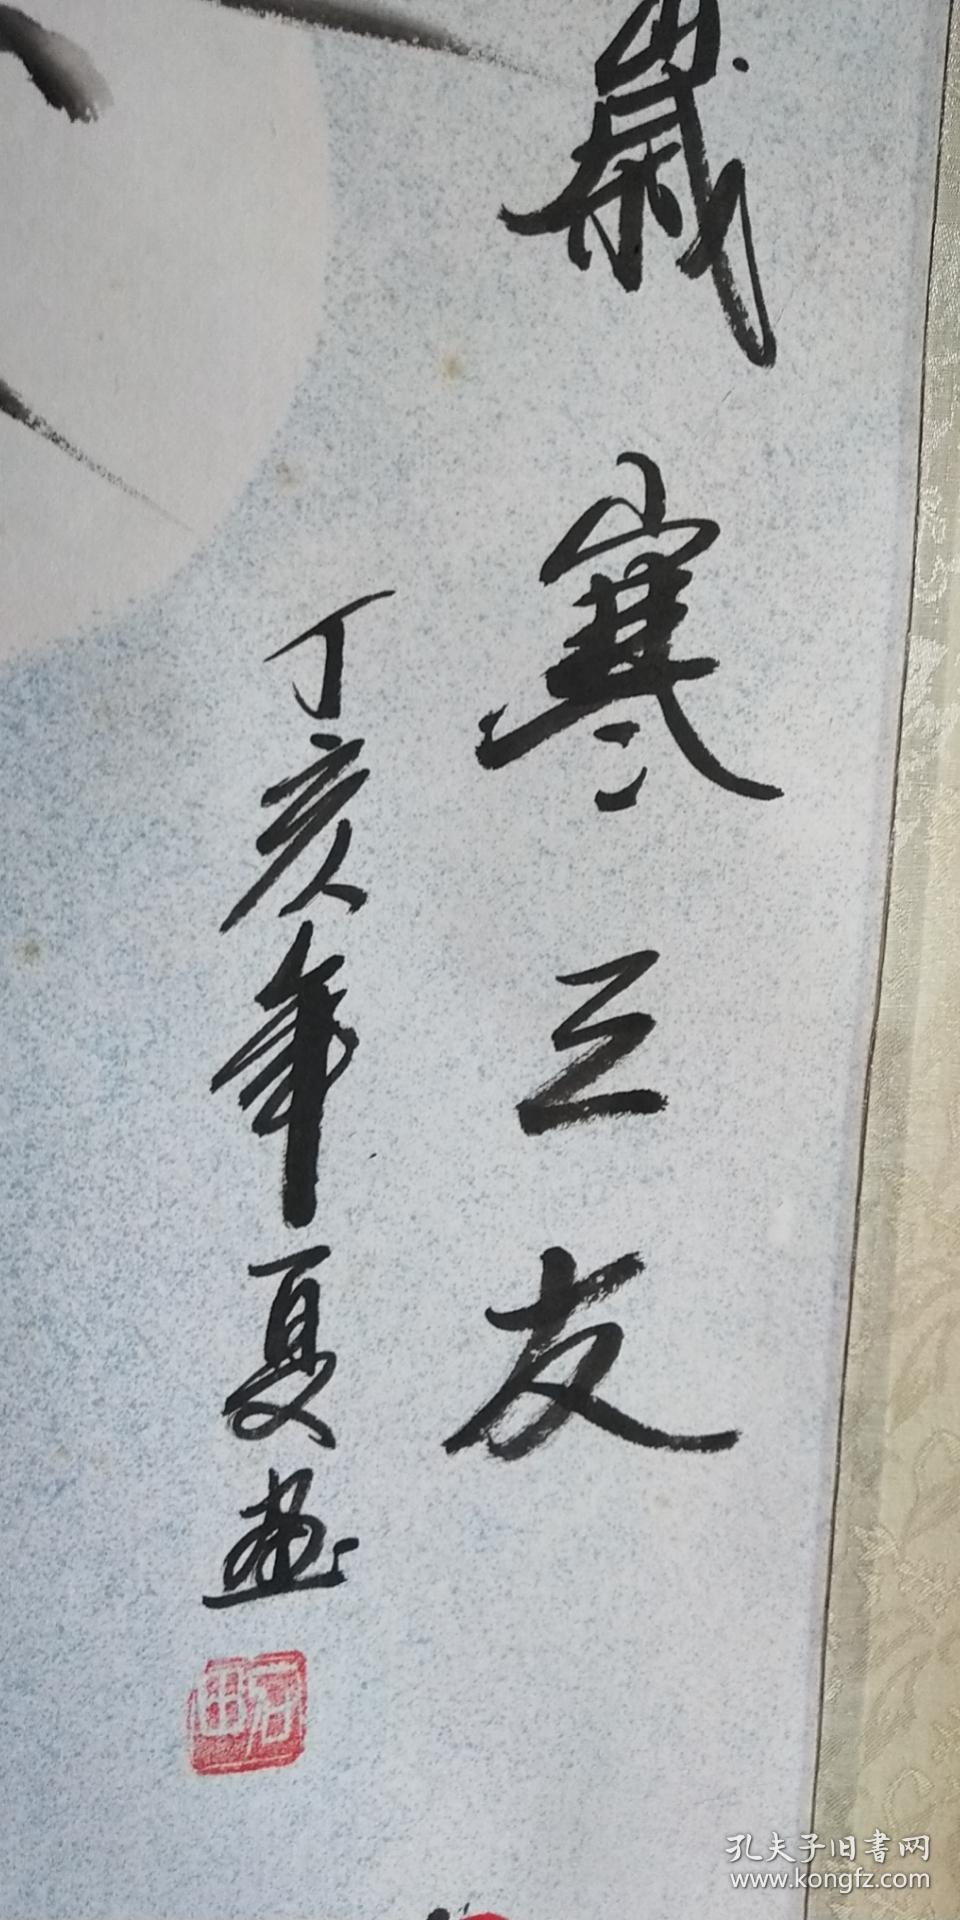 歲寒三友
丁亥年夏画
石田
孔夫子旧书网
www.kongfz.com